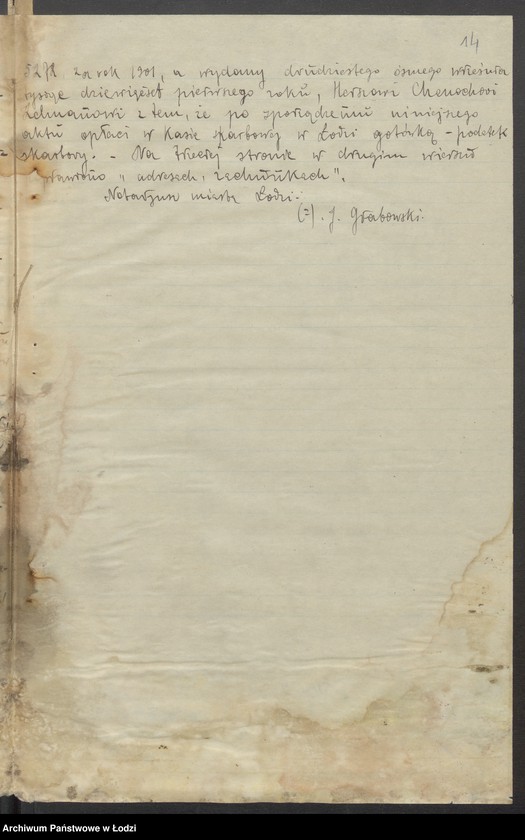 14
za rok 1901, a wydany dwudziestego ósmego września
tysiąc dziewięćset pierwszego roku, Herszowi Chenochowi
z tem, że po sporządzeniu niniejszego
aktu opłaci w Kasie skarbowej w Łodzi gotówką - podatek
skarbowy. - Na trzeciej stronie w drugim wierszu
"adresach, rachunkach".
Notarjusz miasta Łodzi:
(-). J. Grabowski.
Archiwum Państwowe w Łodzi